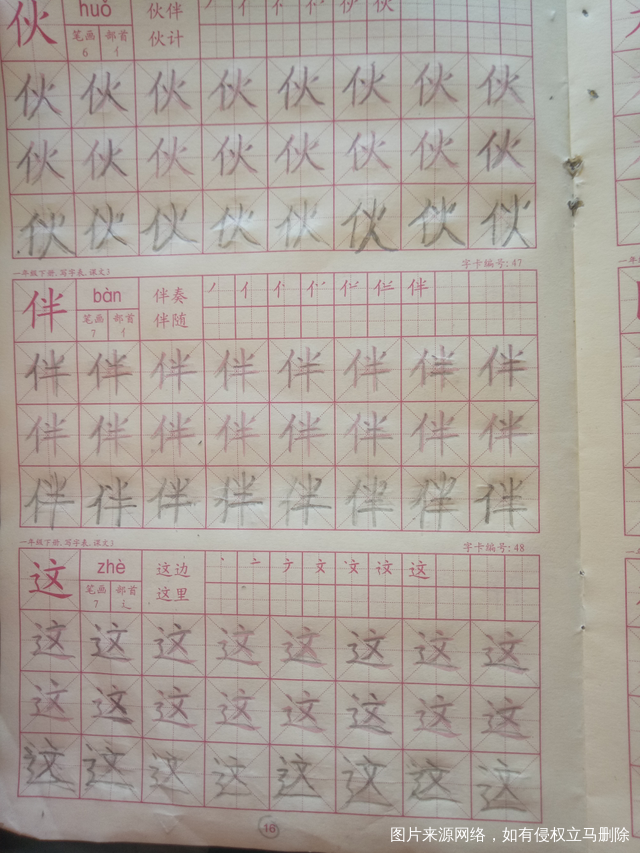 huǒ
伙 伙伴
笔画 部首 伙计
6 亻
丿 亻 伙
伙 伙 伙 伙 伙 伙 伙 伙
伙 伙 伙 伙 伙 伙 伙 伙
伙 伙 伙 伙 伙 伙 伙 伙
字卡编号: 47
一年级下册, 写字表, 课文3
伴 bàn 伴奏
笔画 部首 伴随
7 亻
丿 亻 伴
伴 伴 伴 伴 伴 伴 伴 伴
伴 伴 伴 伴 伴 伴 伴 伴
伴 伴 伴 伴 伴 伴 伴 伴
一年级下册, 写字表, 课文3
字卡编号: 48
这 zhè 这边
笔画 部首 这里
7 辶
丶 亠 文 这
这 这 这 这 这 这 这 这
这 这 这 这 这 这 这 这
这 这 这 这 这 这 这 这
16
图片来源网络，如有侵权立马删除